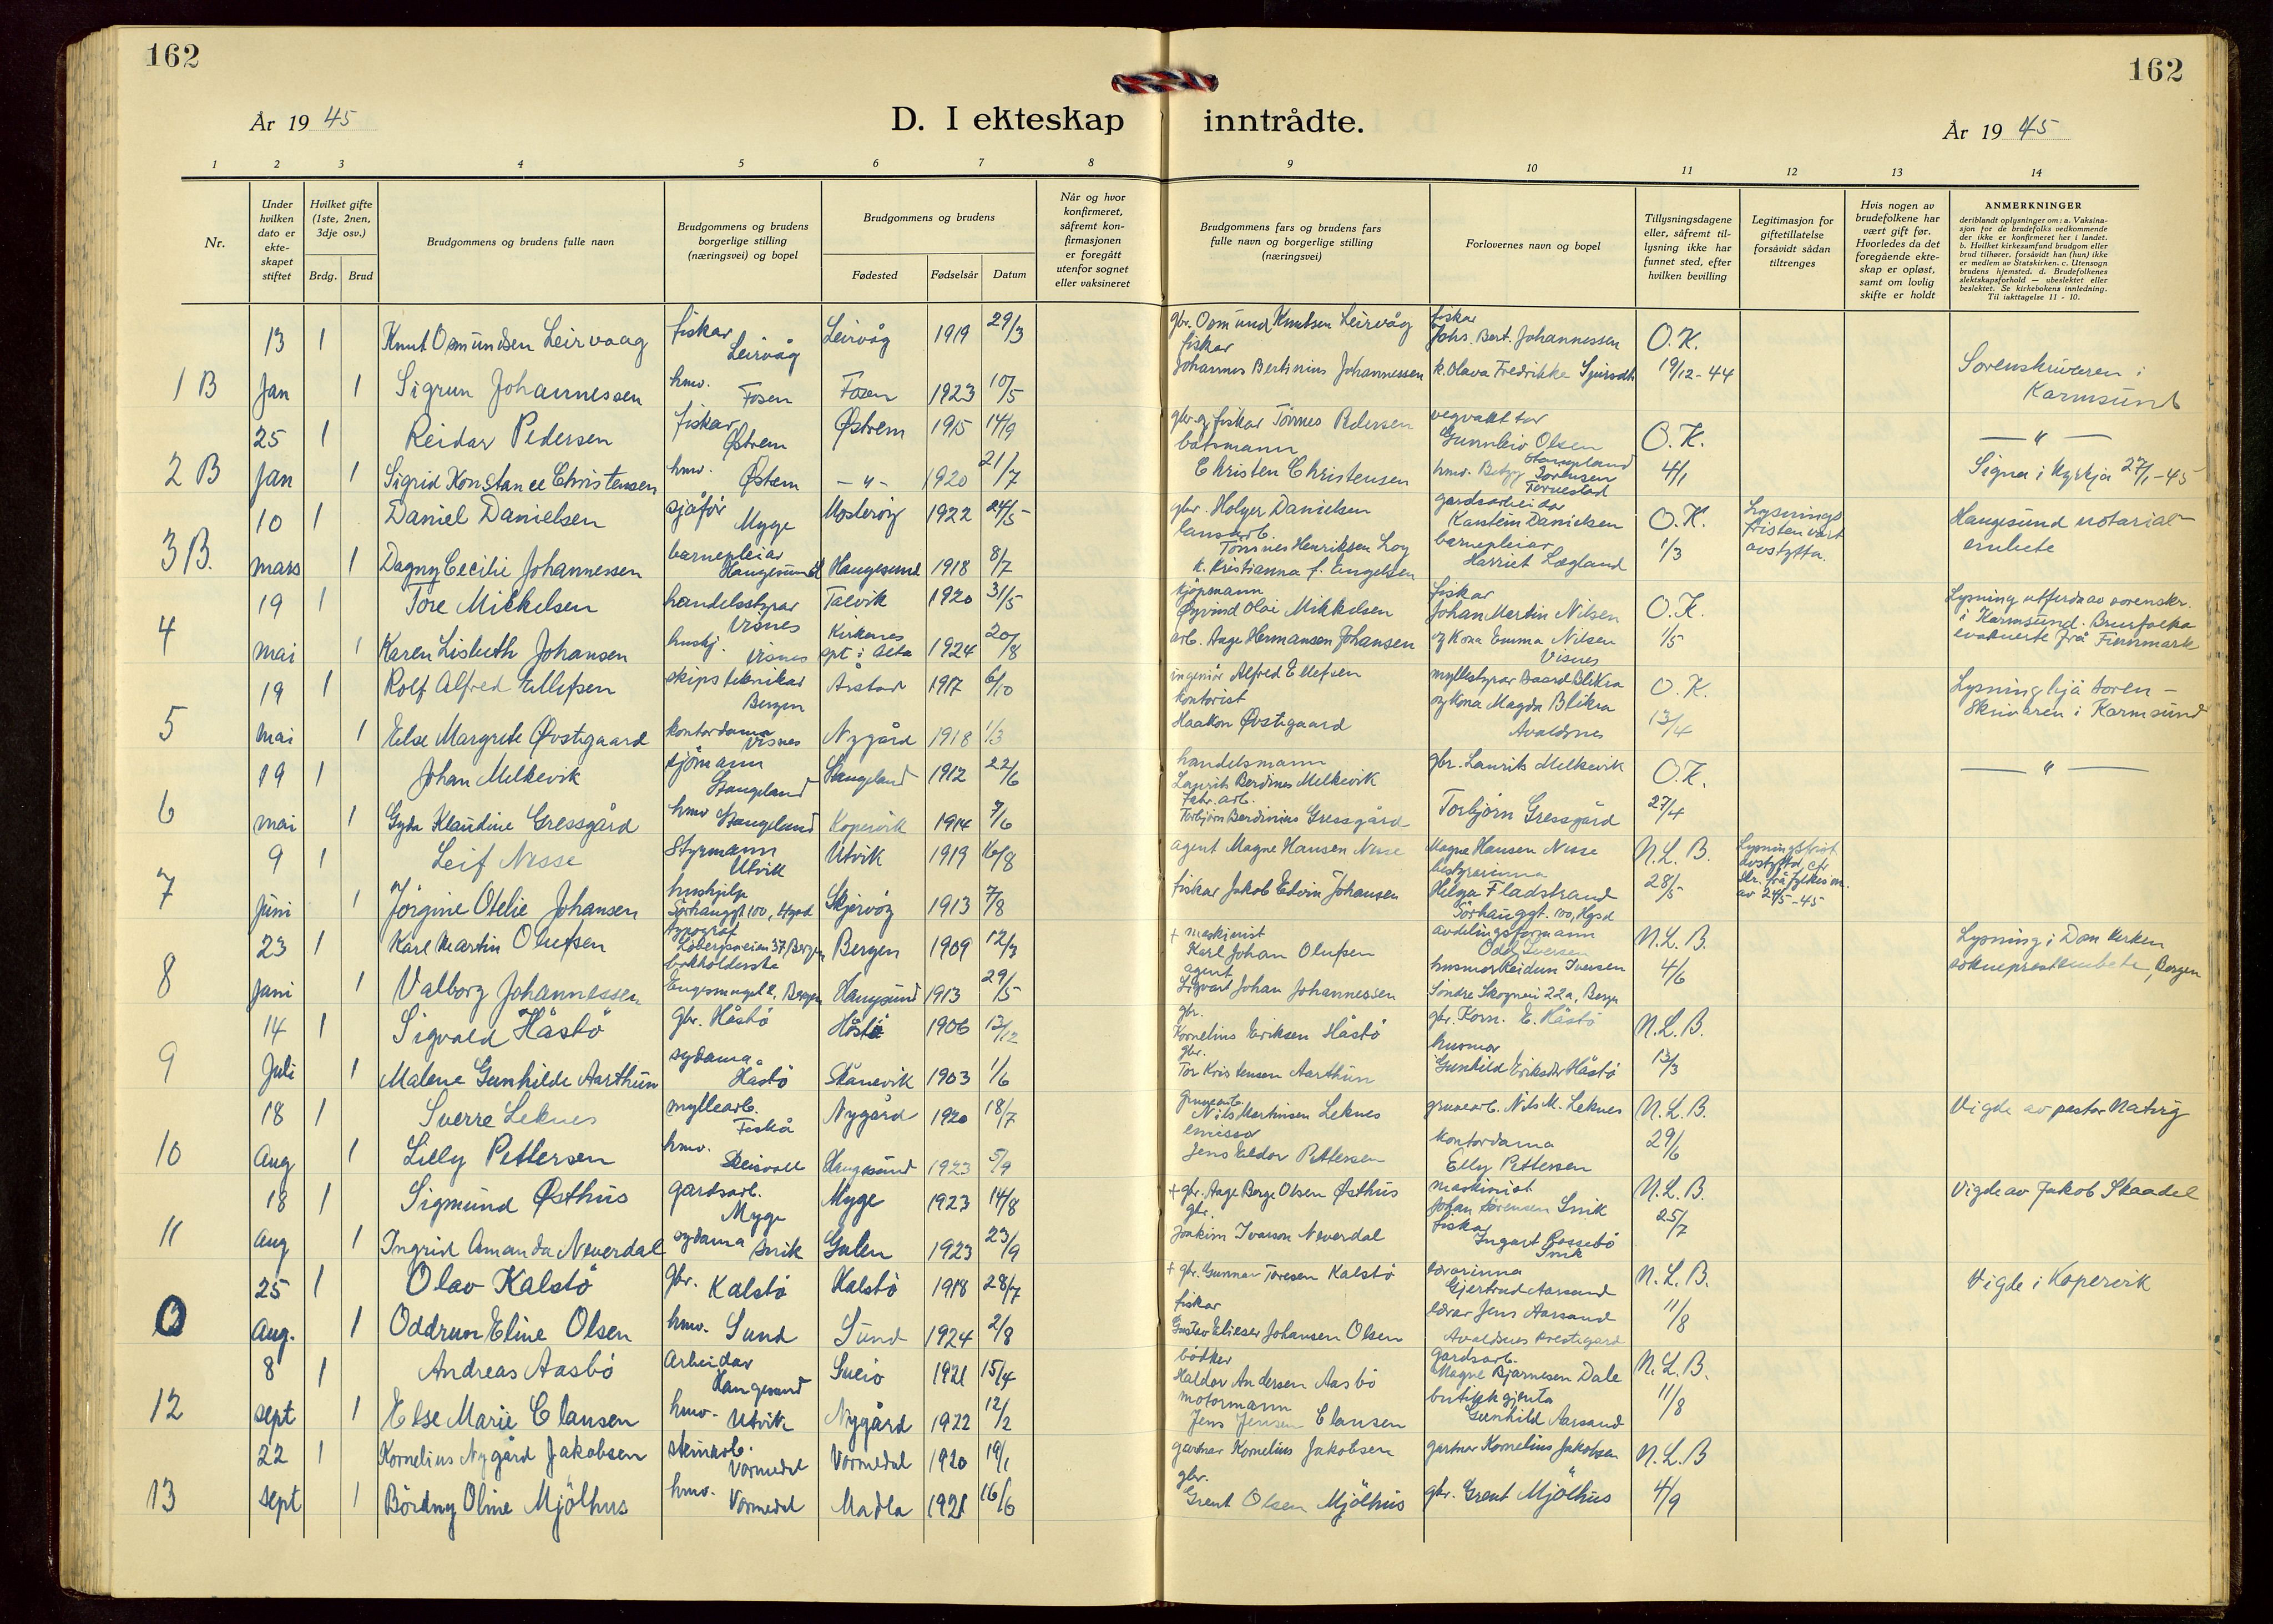 162
162
År 19 45
D. I ekteskap inntrådte.
År 19 45
1 2 3 4 5 6 7 8 9 10 11 12 13 14
Nr.
Under hvilken dato er ekteskapet stiftet
Hvilket gifte (1ste, 2nen, 3dje osv.)
Brdg. Brud
Brudgommens og brudens fulle navn
Brudgommens og brudens borgerlige stilling (næringsvei) og bopel
Brudgommens og brudens
Fødested Fødselsår Datum
Når og hvor konfirmeret, såfremt konfirmasjonen er foregått utenfor sognet eller vaksineret
Brudgommens fars og brudens fars fulle navn og borgerlige stilling (næringsvei)
Forlovernes navn og bopel
Tillysningsdagene eller, såfremt tillysning ikke har funnet sted, efter hvilken bevilling
Legitimasjon for giftetillatelse forsåvidt sådan tiltrenges
Hvis nogen av brudefolkene har vært gift før. Hvorledes da det foregående ekteskap er opløst, samt om lovlig skifte er holdt
ANMERKNINGER
deriblandt oplysninger om: a. Vaksinasjon for de brudefolks vedkommende der ikke er konfirmeret her i landet. b. Hvilket kirkesamfund brudgom eller brud tilhører, forsåvidt han (hun) ikke er medlem av Statskirken. c. Utensogn brudens hjemsted. d. Brudefolkenes slektskapsforhold — ubeslektet eller beslektet. Se kirkebokens innledning. Til iakttagelse 11 - 10.
13 1 Knut Osmundsen Leirvaag fiskar Leirvåg Leirvåg 1919 29/3 gbr. Osmund Knutsen Leirvåg fiskar Johs. Bert. Johannessen O.K.
1 B Jan 1 Sigrun Johannessen hmv. Fosen Fosen 1923 10/5 fiskar Johannes Bertinius Johannessen k. Olava Fredrikke 19/12-44 Sorenskrivaren i Karmsund
25 1 Reidar Pedersen fiskar Østrem Østrem 1915 14/9 gbr. og fiskar Tönnes Pedersen vegvaktar Gunnleiv Olsen Stangeland O.K. — " —
2 B Jan 1 Sigrid Konstance Christensen hmv. Østrem — " — 1920 21/7 båtsmann Christen Christensen hmv. Betzy Sørensen Torvestad 4/1 Signa i kyrkja 27/1-45
10 1 Daniel Danielsen sjåför Myge Mosterøy 1922 24/5 gbr. Holger Danielsen gardsarbeidar Karstein Danielsen O.K. Lysningsfristen vart avstytta. Haugesund notarialembete
3 B. mars 1 Dagny Cecilie Johannessen barnepleiar Haugesund Haugesund 1918 8/7 Tönnes Henriksen k. Kristianna f. Engelsen barnepleiar Harriet Lægland 1/3
19 1 Tore Mikkelsen handelsstyrar Visnes Talvik 1920 31/5 kjöpmann Øyvind Olai Mikkelsen fiskar Johan Martin Nilsen O.K. Lysning utferda av sorenskr. i Karmsund. Brurfolka evakuerte frå Finnmark
4 mai 1 Karen Lisbeth Johansen hushj. Visnes Kirkenes opt i Alta 1924 20/8 arb. Aage Hermansen Johansen og kona Emma Nilsen Visnes 1/5
19 1 Rolf Alfred Ellefsen skipsteknikar Bergen Årstad 1917 6/10 ingeniör Alfred Ellefsen myllestyrar Baard Blikra O.K. Lysning hjå sorenskrivaren i Karmsund
5 mai 1 Else Margrete Øvstegaard kontordama Visnes Nygård 1918 1/3 kontorist Haakon Øvstegaard og kona Magda Blikra Avaldsnes 13/4
19 1 Johan Melkevik sjömann Stangeland Stangeland 1912 22/6 handelsmann Laurits Berdines Melkevik gbr. Laurits Melkevik O.K. — " —
6 mai 1 Gyda Klaudine Gressgård hmv Stangeland Kopervik 1914 7/6 Fabr. arb. Torbjörn Berdinius Gressgård Torbjörn Gressgård 27/4
9 1 Leif Nesse Styrmann Utvik Utvik 1919 16/8 agent Magne Hansen Nesse Magne Hansen Nesse N.L.B. Lysningsfrist avstytta, cfr skr. frå fylkesm. av 24/5-45
7 Juni 1 Jörgine Otelie Johansen hushjelp Sörhauggt 100, Hgsd Skjervöy 1913 7/8 fiskar Jakob Edvin Johansen bestyrarinna Helga Fladstrand Sörhauggt. 100, Hgsd 28/5
23 1 Karl Martin Olufsen typograf Löbergsveien 37 Bergen Bergen 1909 12/3 + maskinist Karl Johan Olufsen avdelingsformann Odd Iversen N.L.B. Lysning i Domkerken sokneprestembete, Bergen
8 Juni 1 Valborg Johannessen bokholderske Bergen Haugesund 1913 29/5 agent Sigvart Johan Johannessen husmor Reidun Iversen Söndre Skogvei 22a, Bergen 4/6
14 1 Sigvald Håstö gbr. Håstö Håstö 1906 13/12 gbr. Kornelius Eriksen Håstö gbr. Korn. E. Håstö N.L.B.
9 Juli 1 Malene Gunhilde Aarthun sydama. Håstö Skånevik 1903 1/6 gbr. Tor Kristensen Aarthun husmor Gunhild Eriksdtr Håstö 13/3
18 1 Sverre Leknes myllearb. Fiskå Nygård 1920 18/7 gruvearb. Nils Martinsen Leknes gruvearb. Nils M. Leknes N.L.B. Vigde av pastor Natvig
10 Aug 1 Lilly Pettersen hmv. Skeisvoll Haugesund 1923 5/9 emissær Jens Eldor Pettersen kontordama Elly Pettersen 29/6
18 1 Sigmund Østhus gardsarb. Myge Myge 1923 14/8 + gbr. Aage Berge Olsen Østhus maskinist Johan Sörensen Snik N.L.B. Vigde av Jakob Skaadel
11 Aug 1 Ingrid Amanda Neverdal sydama Snik Galen 1923 23/9 gbr. Joakim Ivarson Neverdal fiskar Ingvart Bossebö Snik 25/7
25 1 Olav Kalstö gbr. Kalstö Kalstö 1918 28/7 + gbr. Gunnar Toresen Kalstö lærarinna Gjertrud Aarsand N.L.B. Vigde i Kopervik
0 Aug. 1 Oddrun Eline Olsen hmv. Sund Sund 1924 2/8 fiskar Gustav Elieser Johansen Olsen lærar Jens Aarsand Avaldsnes prestegard 11/8
8 1 Andreas Aasbö Arbeidar Haugesund Sveio 1921 15/4 bödker Haldor Andersen Aasbö Gardsarb. Magne Bjarnesen Dale N.L.B.
12 sept 1 Else Marie Clausen hmv. Utvik Nygård 1922 12/2 motormann Jens Jensen Clausen butikkgjenta Gunhild Aarsand 11/8
22 1 Kornelius Nygård Jakobsen Vormedal Vormedal 1920 19/1 gartnar Kornelius Jakobsen gartnar Kornelius Jakobsen N.L.B
13 sept 1 Bördny Oline Mjölhus hmv. Vormedal Madla 1921 16/6 gbr. Grent Olsen Mjölhus gbr. Grent Mjölhus 4/9